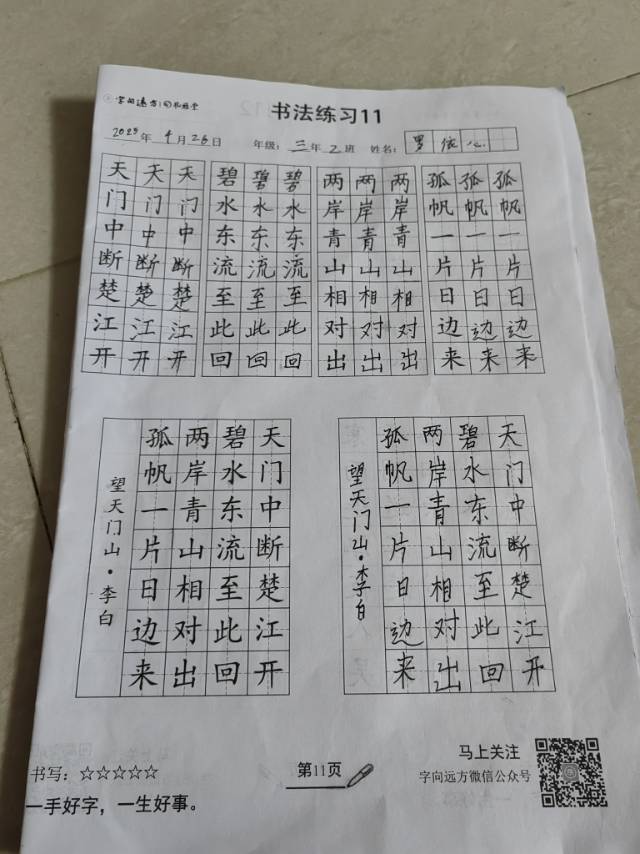 书法练习11
2025年4月26日 年级：三年2班 姓名：罗依心
天天天 碧碧碧 两两两 孤孤孤
门门门 水水水 岸岸岸 帆帆帆
中中中 东东东 青青青 一一一
断断断 流流流 山山山 片片片
楚楚楚 至至至 相相相 日日日
江江江 此此此 对对对 边边边
开开开 回回回 出出出 来来来
天门中断楚江开
碧水东流至此回
两岸青山相对出
孤帆一片日边来
望天门山·李白
天门中断楚江开
碧水东流至此回
两岸青山相对出
孤帆一片日边来
望天门山·李白
书写：☆☆☆☆☆
一手好字，一生好事。
第11页
马上关注
字向远方微信公众号